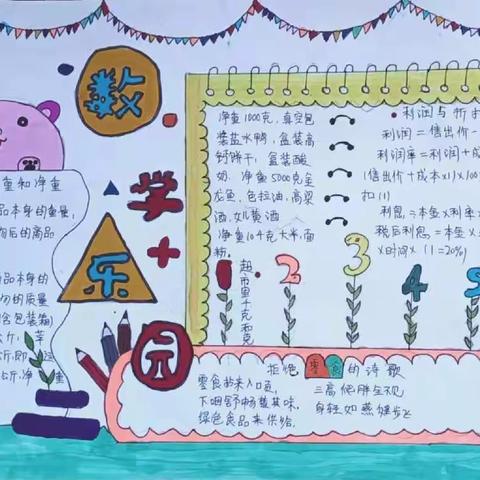 数
学
乐
园
重和净重
品本身的重量,
后的商品
品本身的
的质量
含包装箱)
净重1000克,真空包
装盐水鸭,盒装高
钙饼干,盒装酸
奶.净重5000克金
龙鱼,色拉油,高粱
酒,女儿黄酒
净重10千克大米,面
粉。
超市里千克和克
1 2 3 4 5
利润与折
利润=售出价-
利润率=利润÷成
(售出价÷成本×1)×100
扣(1)
利息=本金×利率×
税后利息=本金×
×时间×(1=20%)
拒绝零食的诗歌
零食拈来入口奠,
下咽舒畅整其味,
绿色食品来供给,
三高肥胖全不见
身轻如燕健步